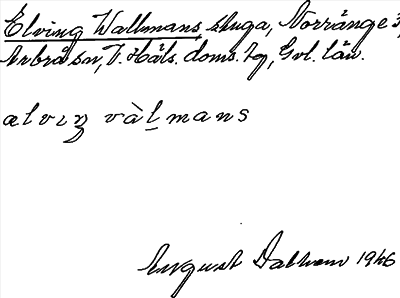 Elving Wallmans stuga, Norrånge 3,
Arbrå sn, V. Häls. doms. tg, Gvl. län.
ælviŋ vàl̠mans
August Dalhem 1946